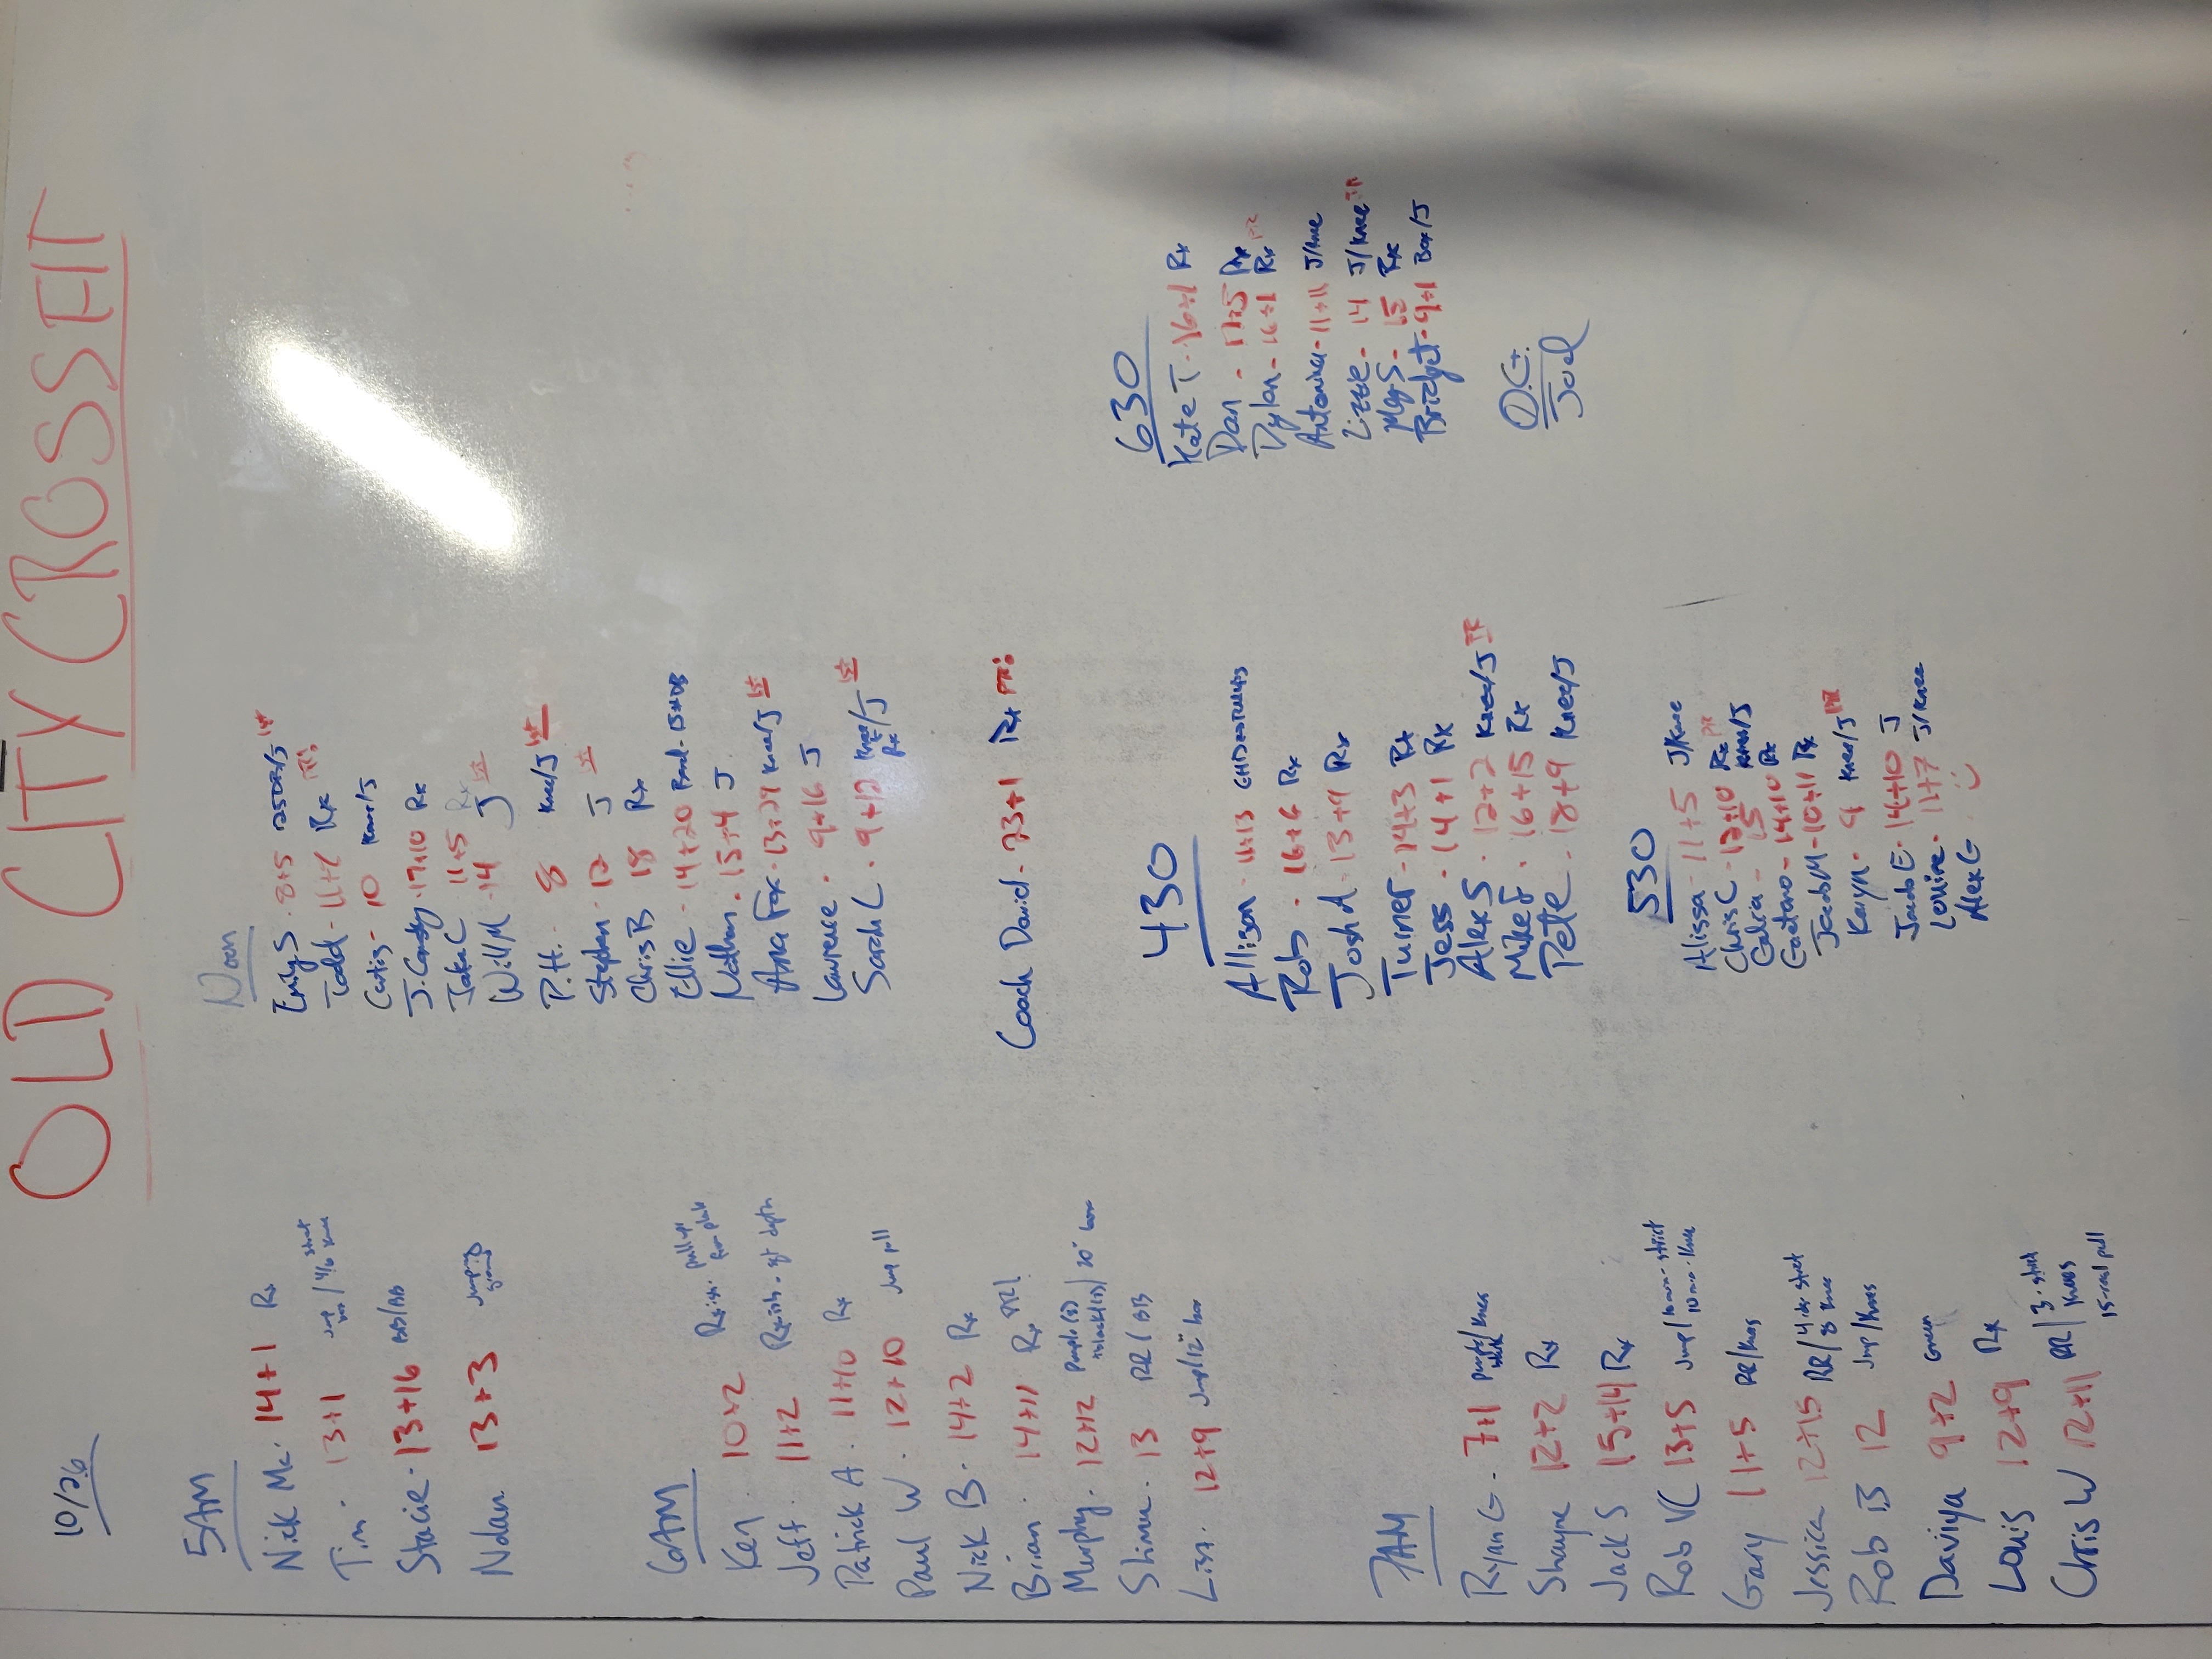 OLD CITY CROSSFIT
10/26
5AM
Nick Mc. 14+1 Rx
Tim. 13+1
Stacie - 13+16 BB/BB
Nolan 13+3 Jumping
6AM
Ken 10+2 Rxish. pull ups from plate
Jeff. 11+2 Rxish - depth
Patrick A. 11+10 Rx
Paul W. 12+10 Jump pull
Nick B. 14+2 Rx
Brian. 14+11 Rx PR!
Murphy. 12+12 Purple 20" box
13 RR/BB
Lisa. 12+9 Jump/12" box
7AM
Ryan G. - 7+1 Knees
Shayne 12+2 Rx
Jack S 15+14 Rx
Rob VC 13+5 Jump/10 min - strict 10 min - Knee
Gary 11+5 RR/Knees
Jessica 12+15 RR/4 rds strict 8 Knee
Rob B 12 Jump/Knees
Daviya 9+2 Green
Louis 12+9 Rx
Chris W 12+11 RR/3 - strict Knees
Noon
Emily S. 8+5 1st
Todd - Rx PR!
Curtis - 10 Knee/J
J. Candy - 17+10 Rx
Jake C 11+5 Rx
Will M - 14 J 1st
P.H. - 8 Knee/J 1st
Stephen - 12 J 1st
Chris B 18 Rx
Ellie - 14+20 Band - 15# DB
Nathan. 15+4 J
Ana Fox - 13+29 Knee/J 1st
Lawrence. 9+16 J
Sarah L. 9+12 Knee/J 1st
Coach David - 23+1 Rx PR!
430
Allison - 11+13
Rob. 16+6 Rx
Josh A. 13+9 Rx
Turner - 14+3 Rx
Jess - 14+1 Rx
Alex S. 12+2 Knee/J PR
Mike F. 16+15 Rx
Pete. 18+9 Knee/J
530
Alissa - 11+5 J/Knee
Chris C - 12+10 Rx PR
15 Knees/J
Gaetano - 14+10 Rx
Jacob M - 10+11 Rx PR
Karyn - 9 Knee/J
Jacob E - 14+10 J
Louise - 11+7 J/Knee
Alex G
630
Kate T - 16+1 Rx
Dan - 17+5 Rx
Dylan - 16+1 Rx PR
Antonina - 11+11 J/Knee
Lizzie - 14 J/Knee PR
Meg S - 15 Rx
Bridget - 9+1 Box/J
O.G.
Joel